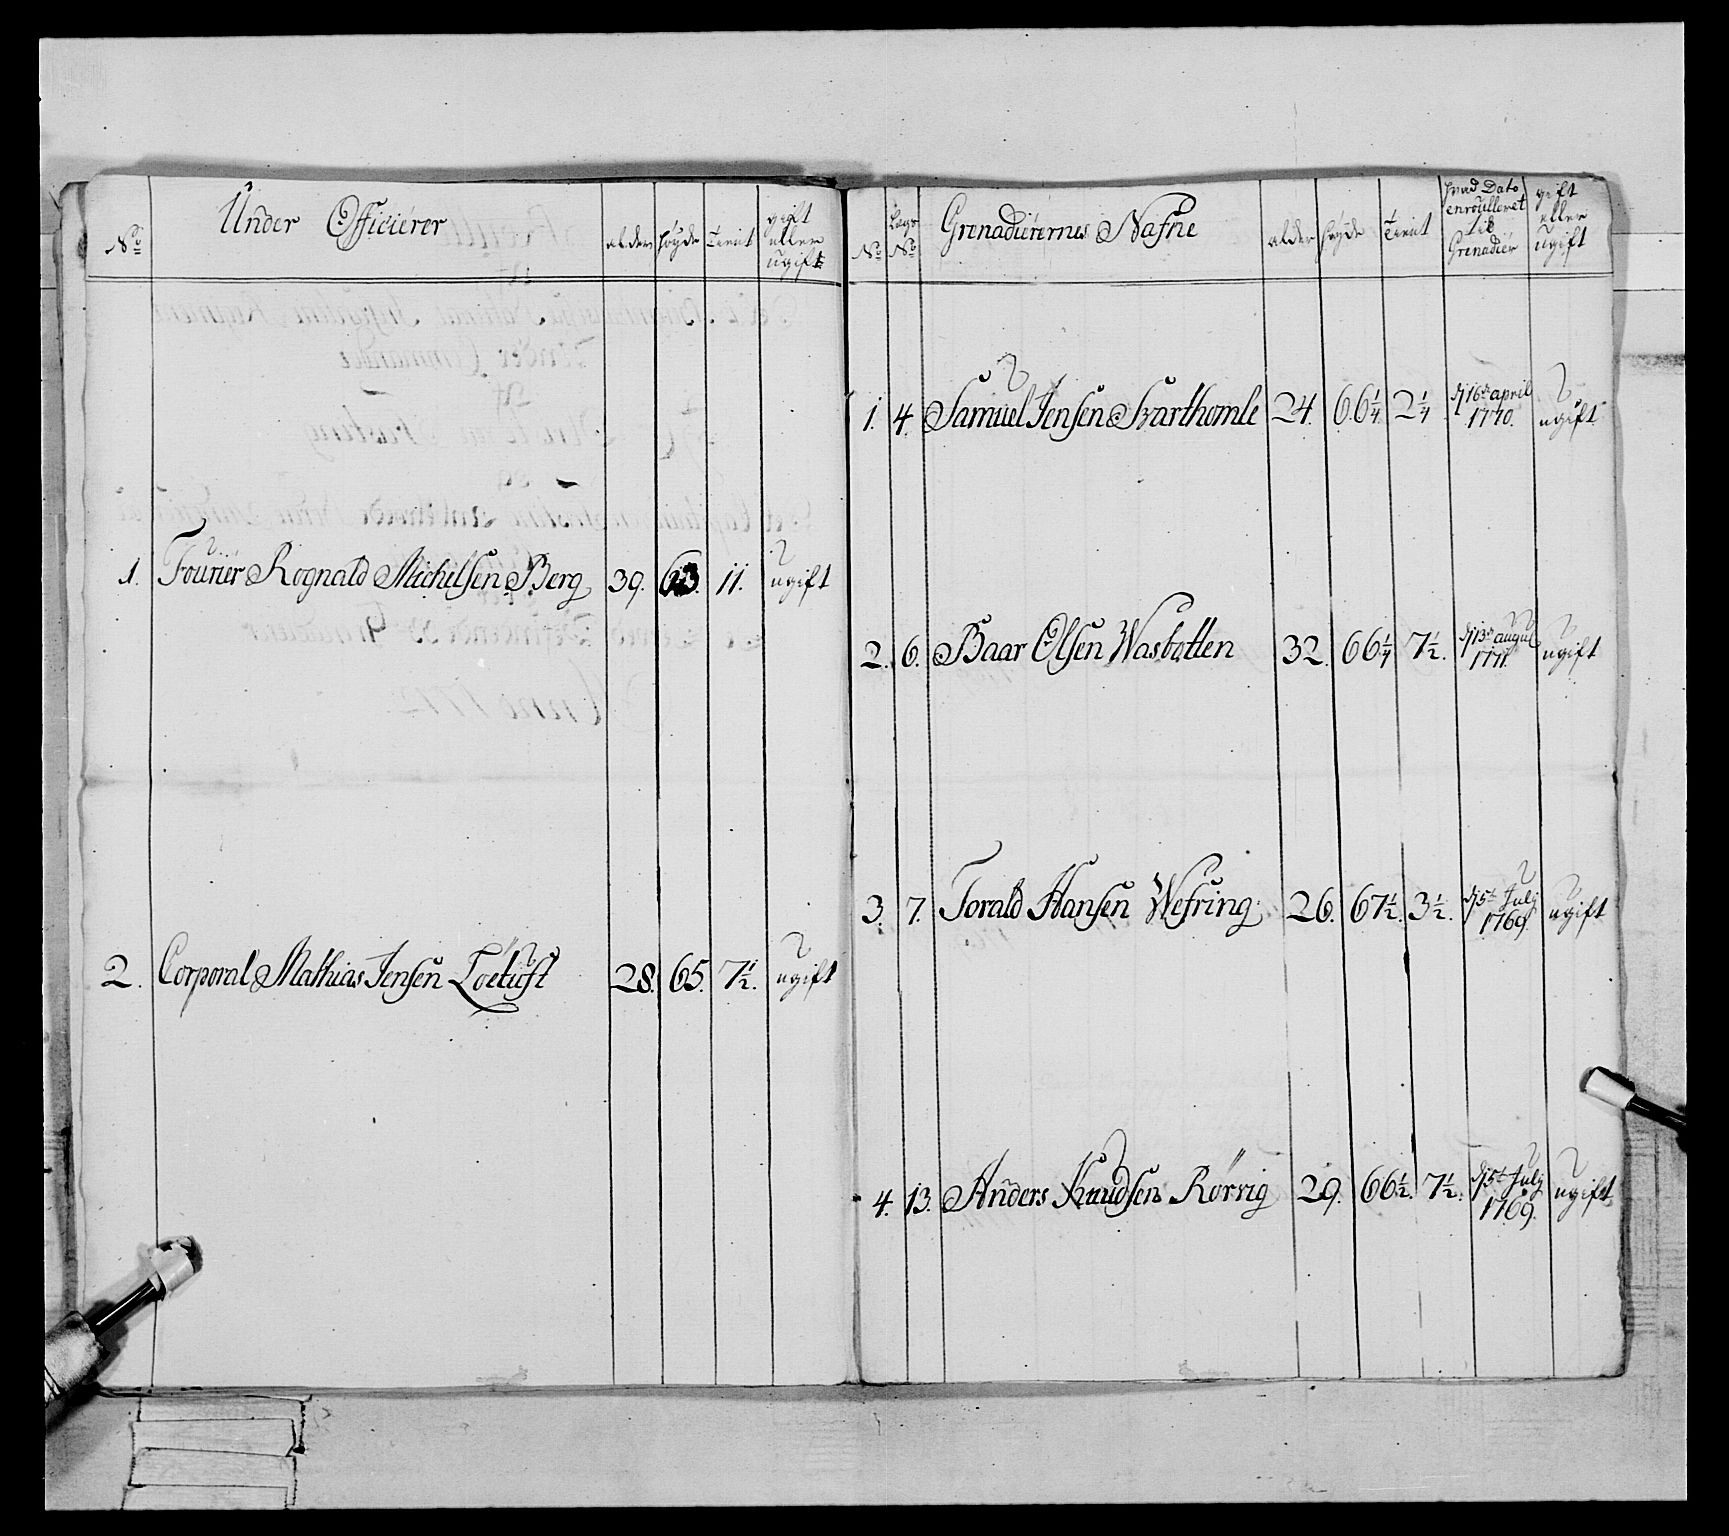 No Under Officierer alder høyde Tienist gift eller ugift
1. Fourier Rognald Michelsen Berg 39. 63. 11. ugift
2. Corporal Mathias Jensen Löetuft 28. 65. 7½. ugift
No Lægs No Grenadierernes Nafne alder høyde Tienist hvad Dato enroulleret til Grenadier gift eller ugift
1. 4. Samuel Jensen Svarthomle 24. 66¼. 2¼ d 16de april 1770. ugift
2. 6. Baar Olsen Wasbotten 32. 66¼ 7½. d 13de augusti 1771. ugift
3. 7. Torald Hansen Wefring 26. 67½. 3½. d 5te July 1769. ugift
4. 13. Anders Knudsen Rörvig 29. 66½. 7½. d 5te July 1769. ugift